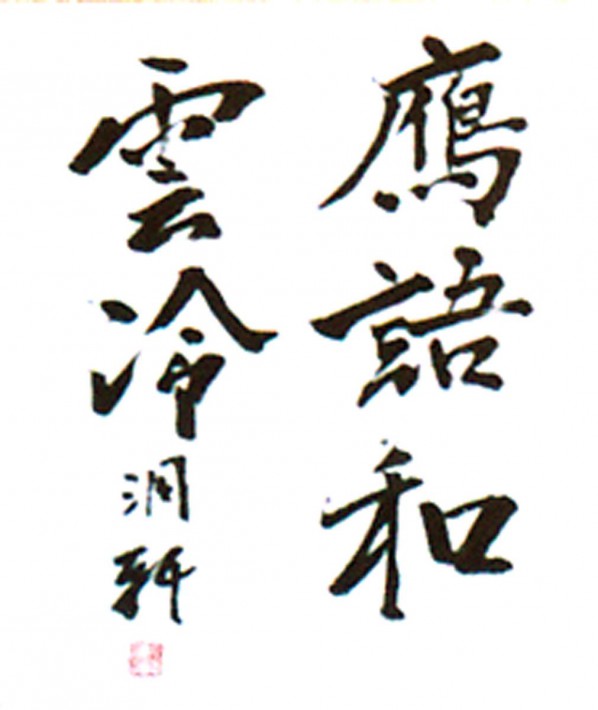 鴈語和
雲冷
洞軒